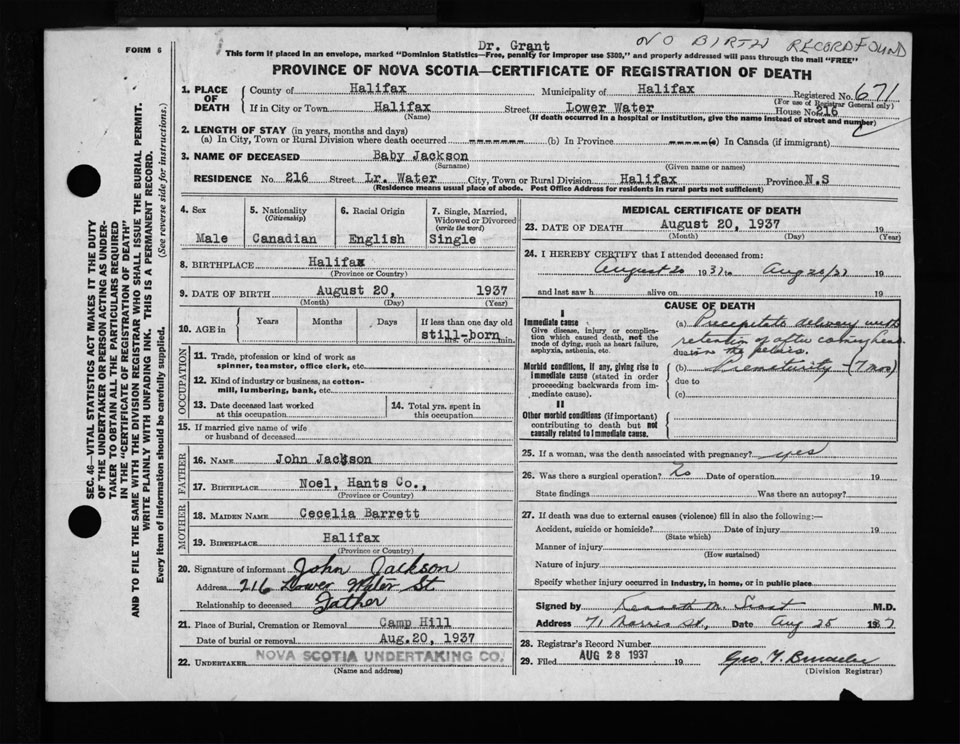 FORM 6
Dr. Grant
NO BIRTH RECORD FOUND
This form if placed in an envelope, marked "Dominion Statistics—Free, penalty for improper use $300," and properly addressed will pass through the mail "FREE"
PROVINCE OF NOVA SCOTIA—CERTIFICATE OF REGISTRATION OF DEATH
SEC. 46—VITAL STATISTICS ACT MAKES IT THE DUTY
OF THE UNDERTAKER OR PERSON ACTING AS UNDER-
TAKER TO OBTAIN ALL THE PARTICULARS REQUIRED
IN THE "CERTIFICATE OF REGISTRATION OF DEATH"
AND TO FILE THE SAME WITH THE DIVISION REGISTRAR WHO SHALL ISSUE THE BURIAL PERMIT.
WRITE PLAINLY WITH UNFADING INK. THIS IS A PERMANENT RECORD.
Every item of information should be carefully supplied. (See reverse side for instructions.)
1. PLACE OF DEATH
County of Halifax Municipality of Halifax Registered No. 671
(For use of Registrar General only)
If in City or Town Halifax Street Lower Water House No. 216
(Name) (If death occurred in a hospital or institution, give the name instead of street and number)
2. LENGTH OF STAY (in years, months and days)
(a) In City, Town or Rural Division where death occurred ------- (b) In Province -----(c) In Canada (if immigrant)
3. NAME OF DECEASED Baby Jackson
(Surname) (Given name or names)
RESIDENCE No. 216 Street Lr. Water City, Town or Rural Division Halifax Province N.S
(Residence means usual place of abode. Post Office Address for residents in rural parts not sufficient)
4. Sex
Male
5. Nationality
(Citizenship)
Canadian
6. Racial Origin
English
7. Single, Married,
Widowed or Divorced
(write the word)
Single
8. BIRTHPLACE Halifax
(Province or Country)
9. DATE OF BIRTH August 20, 1937
(Month) (Day) (Year)
10. AGE in Years Months Days If less than one day old
still-born min.
OCCUPATION
11. Trade, profession or kind of work as
spinner, teamster, office clerk, etc.
12. Kind of industry or business, as cotton-
mill, lumbering, bank, etc.
13. Date deceased last worked
at this occupation
14. Total yrs. spent in
this occupation
15. If married give name of wife
or husband of deceased
FATHER
16. NAME John Jackson
17. BIRTHPLACE Noel, Hants Co.,
(Province or Country)
MOTHER
18. MAIDEN NAME Cecelia Barrett
19. BIRTHPLACE Halifax
(Province or Country)
20. Signature of informant John Jackson
Address 216 Lower Water St.
Relationship to deceased Father
21. Place of Burial, Cremation or Removal Camp Hill
Date of burial or removal Aug. 20, 1937
22. UNDERTAKER NOVA SCOTIA UNDERTAKING CO.
(Name and address)
MEDICAL CERTIFICATE OF DEATH
23. DATE OF DEATH August 20, 1937 19
(Month) (Day) (Year)
24. I HEREBY CERTIFY that I attended deceased from:
August 20 1937 to Aug 20/37 19
and last saw h alive on 19
CAUSE OF DEATH
I
Immediate cause
Give disease, injury or complica-
tion which caused death, not the
mode of dying, such as heart failure,
asphyxia, asthenia, etc.
(a) Precipitate delivery with
retention of after coming head
due to in the pelvis.
Morbid conditions, if any, giving rise to
immediate cause (stated in order
proceeding backwards from im-
mediate cause).
(b) Prematurity (7 mos)
due to
(c)
II
Other morbid conditions (if important)
contributing to death but not
causally related to immediate cause.
25. If a woman, was the death associated with pregnancy? yes
26. Was there a surgical operation? No Date of operation 19
State findings Was there an autopsy?
27. If death was due to external causes (violence) fill in also the following:—
Accident, suicide or homicide? Date of injury 19
(State which)
Manner of injury
(How sustained)
Nature of injury
Specify whether injury occurred in industry, in home, or in public place
Signed by Kenneth M. Grant M.D.
Address 71 Morris St., Date Aug 25 1937
28. Registrar's Record Number
29. Filed AUG 28 1937 19 Geo. Y.
(Division Registrar)